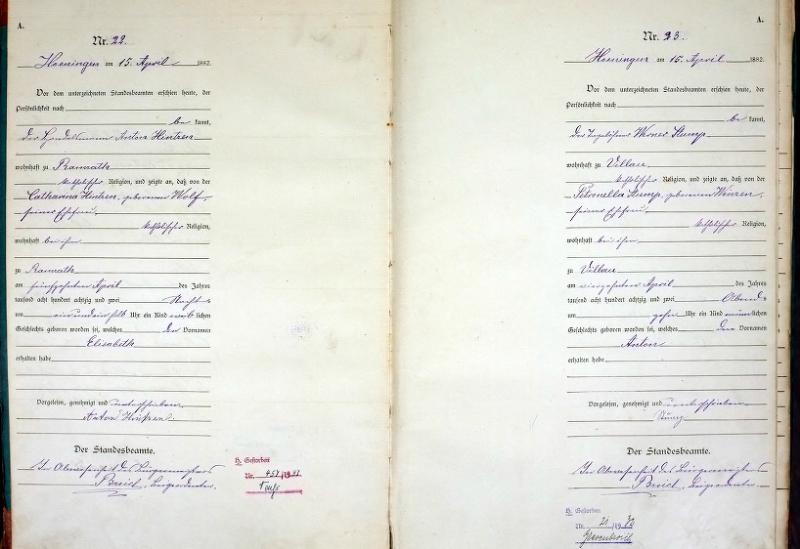 A.
Nr. 22.
Hoeningen am 15. April 1882.
Vor dem unterzeichneten Standesbeamten erschien heute, der
Persönlichkeit nach
be kannt,
der Handelsmann Anton Hintzen
wohnhaft zu Ramrath
katholischer Religion, und zeigte an, daß von der
Catharina Hintzen, geborenen Wolf,
seiner Ehefrau
katholischer Religion,
wohnhaft bei ihm
zu Ramrath
am fünfzehnten April des Jahres
tausend acht hundert achtzig und zwei Nachts
um ein und ein halb Uhr ein Kind weib lichen
Geschlechts geboren worden sei, welches den Vornamen
Elisabeth
erhalten habe
Vorgelesen, genehmigt und unterschrieben
Anton
Der Standesbeamte.
In Abwesenheit des Bürgermeisters
Beigeordneter.
H. Gestorben
Nr. 457/19
A.
Nr. 23.
Hoeningen am 15. April 1882.
Vor dem unterzeichneten Standesbeamten erschien heute, der
Persönlichkeit nach
be kannt,
der Tagelöhner Werner Stump
wohnhaft zu Villau
katholischer Religion, und zeigte an, daß von der
Petronella Stump, geborenen Winzen,
seiner Ehefrau
katholischer Religion,
wohnhaft bei ihm
zu Villau
am vierzehnten April des Jahres
tausend acht hundert achtzig und zwei Abends
um zehn Uhr ein Kind männ lichen
Geschlechts geboren worden sei, welches den Vornamen
Anton
erhalten habe
Vorgelesen, genehmigt und unterschrieben
Stump
Der Standesbeamte.
In Abwesenheit des Bürgermeisters
Beigeordneter.
H. Gestorben
Nr. 21/19